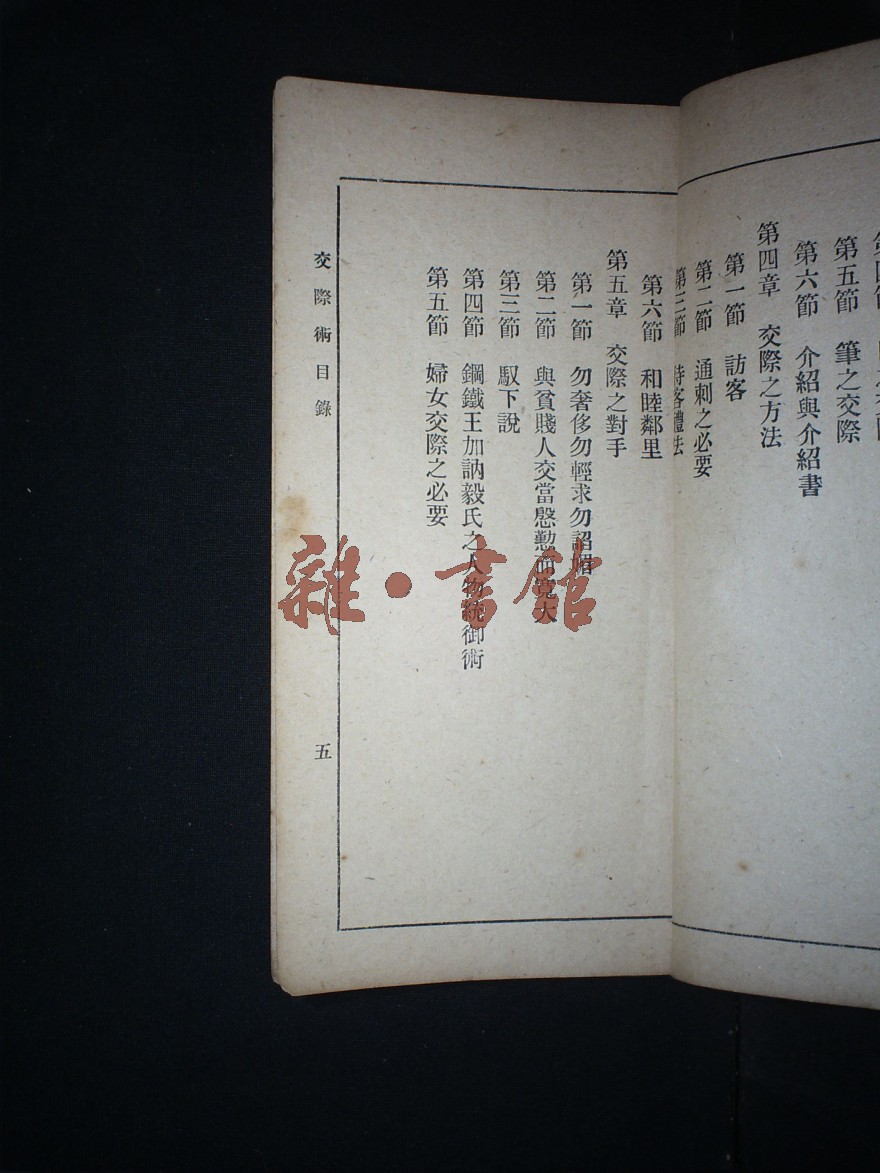 第五節　筆之交際
第六節　介紹與介紹書
第四章　交際之方法
第一節　訪客
第二節　通刺之必要
第三節　待客禮法
第六節　和睦鄰里
第五章　交際之對手
第一節　勿奢侈勿輕求勿諂媚
第二節　與貧賤人交當慇懃而寬大
第三節　馭下說
第四節　鋼鐵王加訥毅氏之人物統御術
第五節　婦女交際之必要
交際術目錄
五
雜·書館